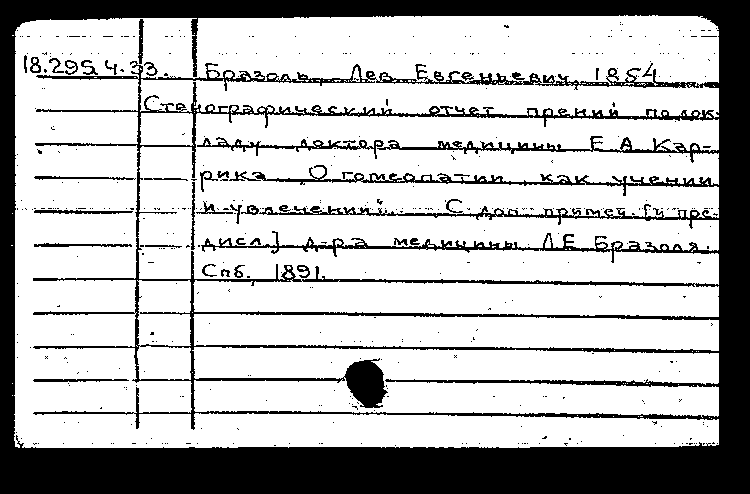 18.295.4.33. Бразоль, Лев Евгеньевич, 1854
Стенографический отчет прений по док-
ладу доктора медицины Е А Кар-
рика О гомеопатии как учении
и увлечении". С доп. примеч. [и пре-
дисл.] д-ра медицины Л Е Бразоля.
Спб., 1891.